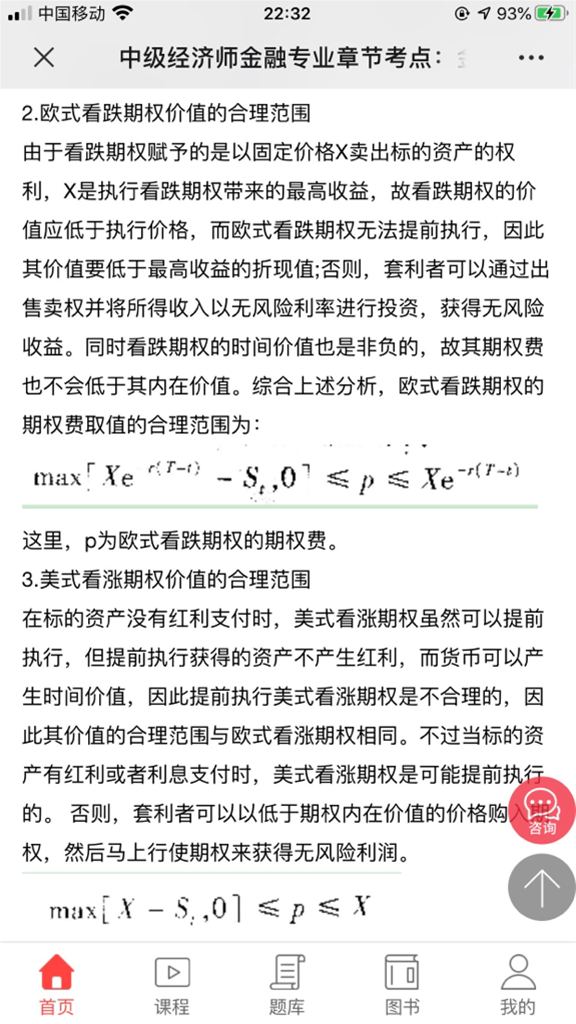 中国移动 22:32 93%
中级经济师金融专业章节考点：
2.欧式看跌期权价值的合理范围
由于看跌期权赋予的是以固定价格X卖出标的资产的权
利，X是执行看跌期权带来的最高收益，故看跌期权的价
值应低于执行价格，而欧式看跌期权无法提前执行，因此
其价值要低于最高收益的折现值;否则，套利者可以通过出
售卖权并将所得收入以无风险利率进行投资，获得无风险
收益。同时看跌期权的时间价值也是非负的，故其期权费
也不会低于其内在价值。综合上述分析，欧式看跌期权的
期权费取值的合理范围为：
max[Xe^{-r(T-t)} - S_t,0] ≤ p ≤ Xe^{-r(T-t)}
这里，p为欧式看跌期权的期权费。
3.美式看涨期权价值的合理范围
在标的资产没有红利支付时，美式看涨期权虽然可以提前
执行，但提前执行获得的资产不产生红利，而货币可以产
生时间价值，因此提前执行美式看涨期权是不合理的，因
此其价值的合理范围与欧式看涨期权相同。不过当标的资
产有红利或者利息支付时，美式看涨期权是可能提前执行
的。 否则，套利者可以以低于期权内在价值的价格购入期
权，然后马上行使期权来获得无风险利润。
咨询
max[X - S_t,0] ≤ p ≤ X
首页 课程 题库 图书 我的